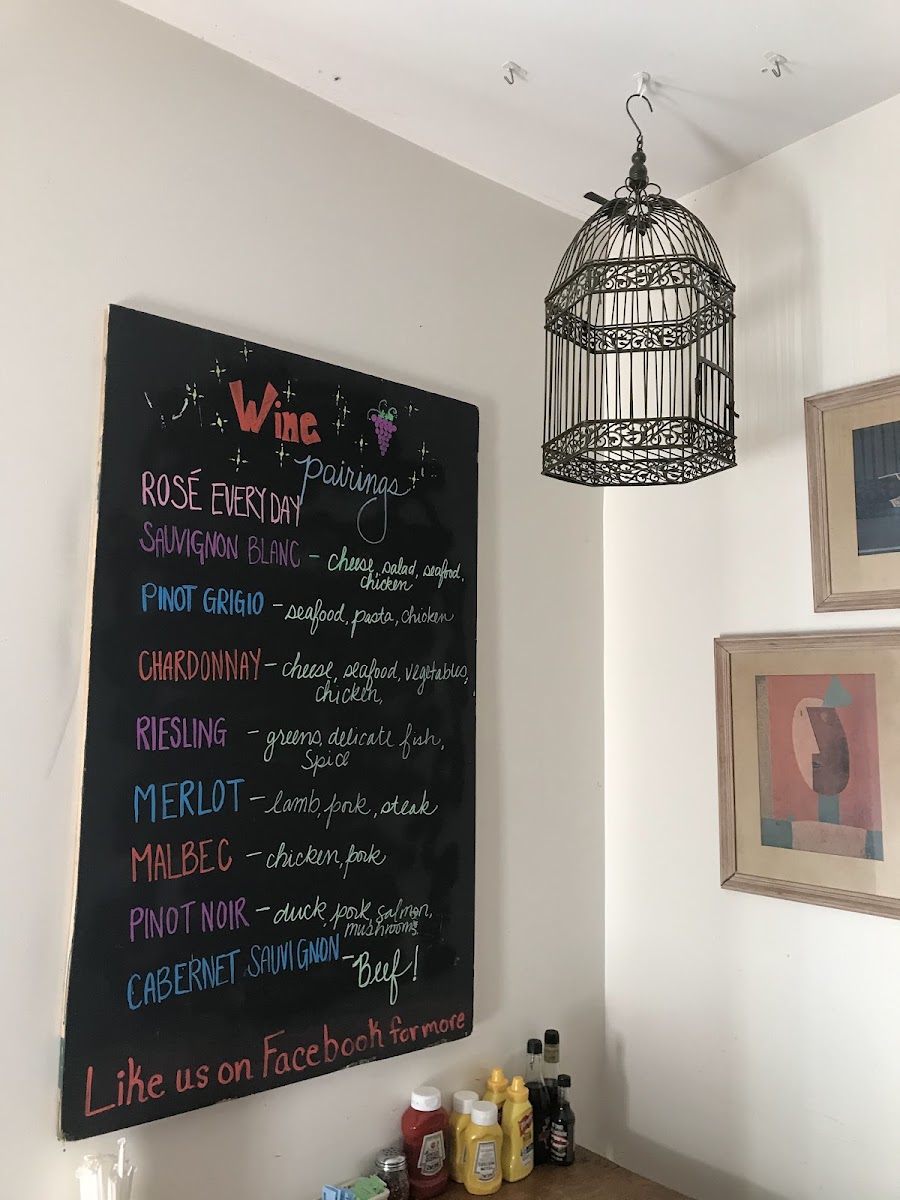 Wine
pairings
ROSÉ EVERYDAY
SAUVIGNON BLANC - cheese, salad, seafood,
chicken
PINOT GRIGIO - seafood, pasta, chicken
CHARDONNAY - cheese, seafood, vegetables,
chicken,
RIESLING - greens, delicate fish,
Spice
MERLOT - lamb, pork, steak
MALBEC - chicken, pork
PINOT NOIR - duck, pork, salmon,
mushrooms
CABERNET SAUVIGNON - Beef!
Like us on Facebook for more